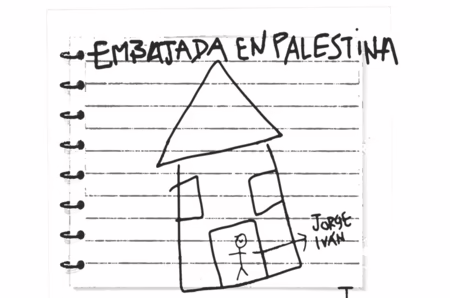 EMBAJADA EN PALESTINA
JORGE
IVAN